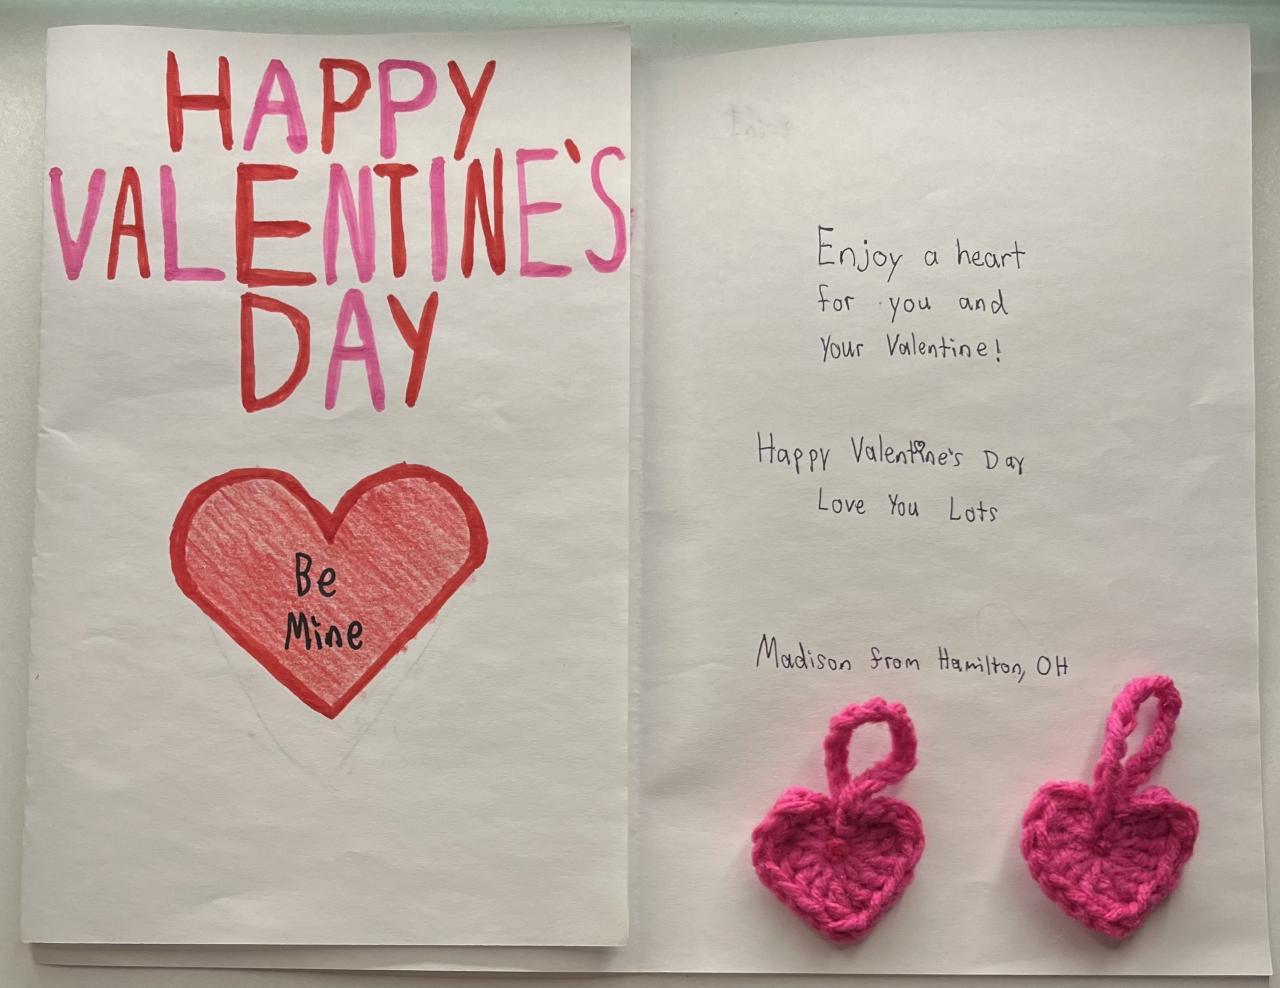 HAPPY
VALENTINE'S
DAY
Be
Mine
Enjoy a heart
for you and
your Valentine!
Happy Valentine's Day
Love You Lots
Madison from Hamilton, OH